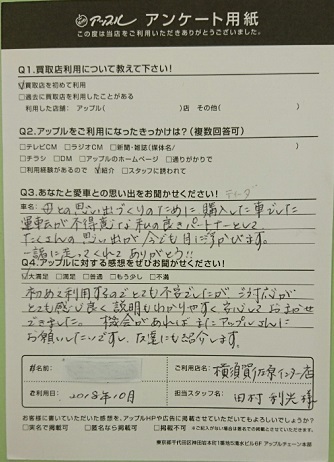 アップル アンケート用紙
この度は当店をご利用いただきありがとうございました。
Q1.買取店利用について教えて下さい!
☑買取店を初めて利用
□過去に買取店を利用したことがある
利用した店舗: アップル( )店 その他( )
Q2.アップルをご利用になったきっかけは?(複数回答可)
□テレビCM □ラジオCM □新聞・雑誌(媒体名/ )
□チラシ □DM □アップルのホームページ □通りがかりで
□利用経験があるので ☑紹介 □スタッフに誘われて
Q3.あなたと愛車との思い出をお聞かせください!
車名: 母との思い出づくりのために購入した車でした
運転が不得意な私の良きパートナーとして
たくさんの思い出が今でも目にうかびます。
一緒に走ってくれてありがとう!!
Q4.アップルに対する感想をぜひお聞かせください!
☑大満足 □満足 □普通 □もう少し □不満
初めて利用するのでとても不安でしたが
とても感じ良く説明もわかりやすく安心しておまかせ
できました。機会があればまたアップルさんに
お願いしたいですし、友達にも紹介します。
お名前:
ご利用店名: 横須賀佐原インター店
ご利用日: 2018年10月
担当スタッフ名: 田村利光様
お客様に書いていただいた感想を、アップルHPや広告に掲載させていただいてもよろしいでしょうか?
□実名で掲載可 □匿名なら掲載可 □掲載不可
東京都千代田区神田岩本町1番地5清水ビル6F アップルチェーン本部